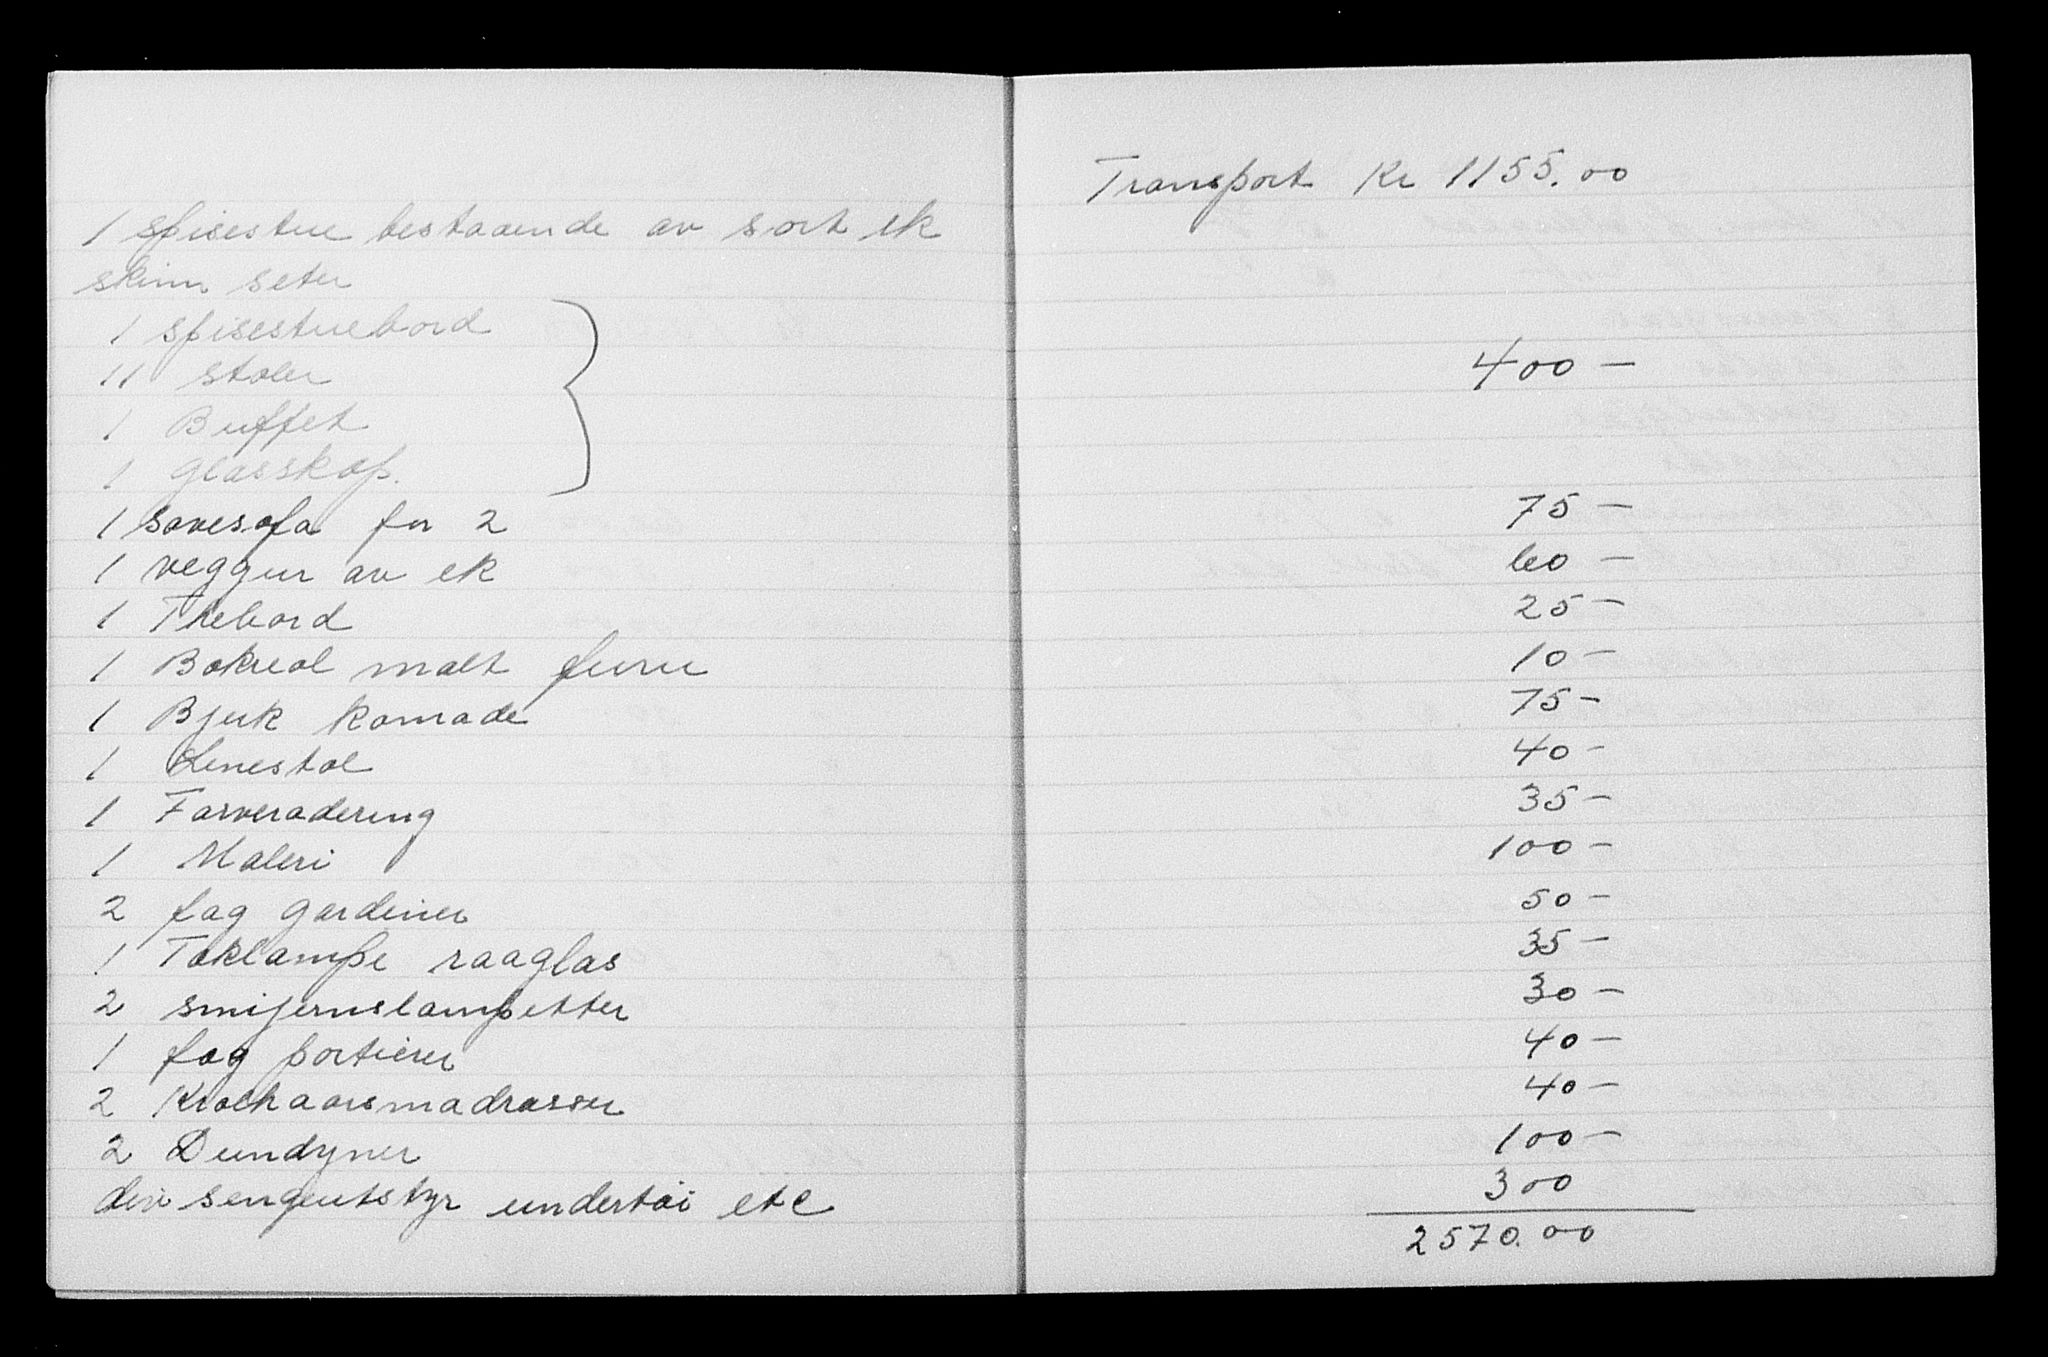 1 spisestue bestaaende av sort ek
skinn seter
1 spisestuebord
11 stoler
1 Buffet
1 Glasskap.
1 sovesofa for 2
1 veggur av ek
1 Thebord
1 Bokreol malt furu
1 Bjerk komode
1 Lenestol
1 Farveradering
1 Maleri
2 fag gardiner
1 Taklampe raaglas
2 smijernslampetter
1 fag portierer
2 Krølhaarsmadrasser
2 Dundyner
div sengeutstyr undertøi etc
Transport Kr 1155.00
400 —
75 —
60 —
25 —
10 —
75 —
40 -
35 —
100 —
50 —
35 —
30 —
40 —
40 —
100 —
300
2570.00